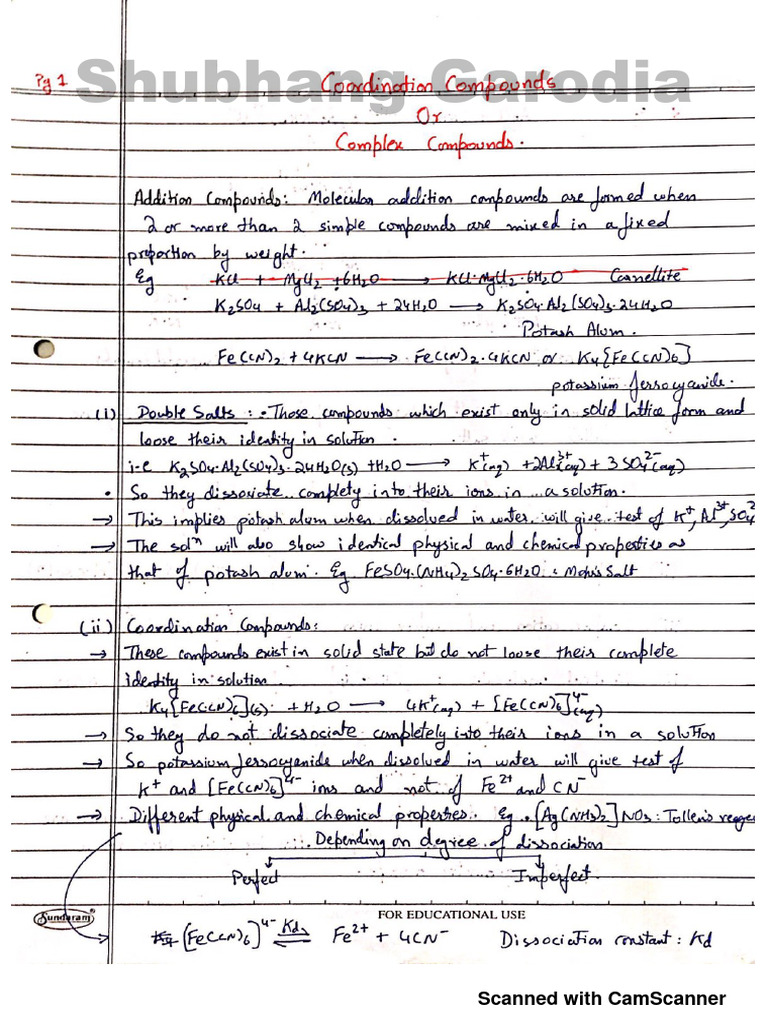 Shubhang Garodia
Pg 1
Coordination Compounds
Or
Complex Compounds.
Addition Compounds: Molecular addition compounds are formed when
2 or more than 2 simple compounds are mixed in a fixed
proportion by weight.
Eg KCl + MgCl2 + 6H2O → KCl·MgCl2·6H2O Carnellite
K2SO4 + Al2(SO4)3 + 24H2O → K2SO4·Al2(SO4)3·24H2O
Potash Alum.
Fe(CN)2 + 4KCN → Fe(CN)2·4KCN or K4[Fe(CN)6]
potassium ferrocyanide.
(i) Double Salts : • Those compounds which exist only in solid lattice form and
loose their identity in solution.
i-e K2SO4·Al2(SO4)3·24H2O(s) + H2O → K+(aq) + 2Al3+(aq) + 3SO4 2-(aq)
• So they dissociate complety into their ions in a solution.
→ This implies potash alum when dissolved in water will give test of K+, Al3+, SO4 2
→ The soln will also show identical physical and chemical properties as
that of potash alum. Eg FeSO4·(NH4)2SO4·6H2O : Mohr's Salt
(ii) Coordination Compounds:
→ These compounds exist in solid state but do not loose their complete
identity in solution
K4[Fe(CN)6](s) + H2O → 4K+(aq) + [Fe(CN)6]4-(aq)
→ So they do not dissociate completely into their ions in a solution
→ So potassium ferrocyanide when dissolved in water will give test of
K+ and [Fe(CN)6]4- ions and not of Fe2+ and CN-
→ Different physical and chemical properties. Eg. [Ag(NH3)2]NO3 : Tollen's reagen
Depending on degree of dissociation
Perfect Imperfect.
Sundaram® FOR EDUCATIONAL USE
→ [Fe(CN)6]4- Kd⇌ Fe2+ + 4CN- Dissociation constant : Kd
Scanned with CamScanner